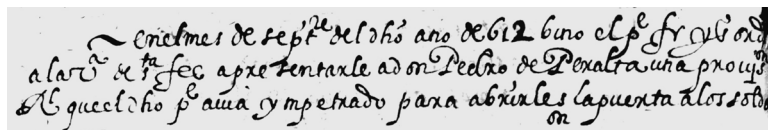 en el mes de sept.re del dho año de 612 bino el p.e fr
a la v.a de s.ta fee a presentarle a don Pedro de Peralta una provis.on
R.l que el dho p.e avia ympetrado para abrirles la puerta a los sold